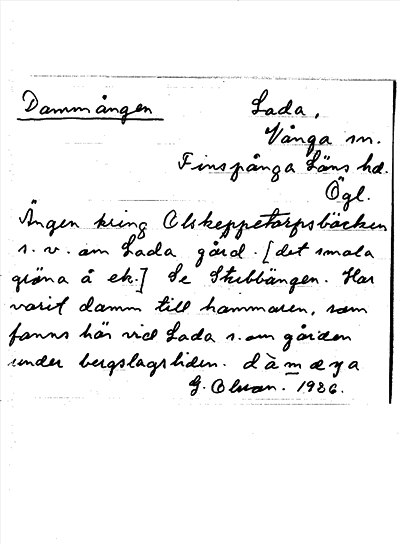 Dammängen
Lada,
Vånga sn.
Finspånga Läns hd.
Ögl.
Ängen kring Olskeppetorpsbäcken
s. v. om Lada gård. [det smala
gröna å ek.] Se Stubbängen. Har
varit damm till hammaren, som
fanns här vid Lada s. om gården
under bergslagstiden. dàmæŋa
G. Olson. 1926.